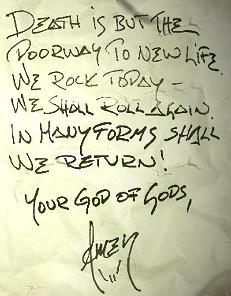 DEATH IS BUT THE
DOORWAY TO NEW LIFE.
WE ROCK TODAY -
WE SHALL ROLL AGAIN.
IN MANY FORMS SHALL
WE RETURN!
YOUR GOD OF GODS,
AMEN